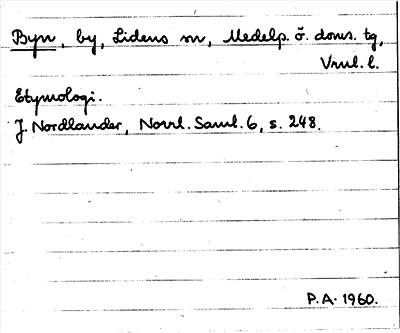 Byn, by, Lidens sn, Medelp. ö. doms. tg,
Vrnl. l.
Etymologi.
J. Nordlander, Norrl. Saml. 6, s. 248.
P.A. 1960.